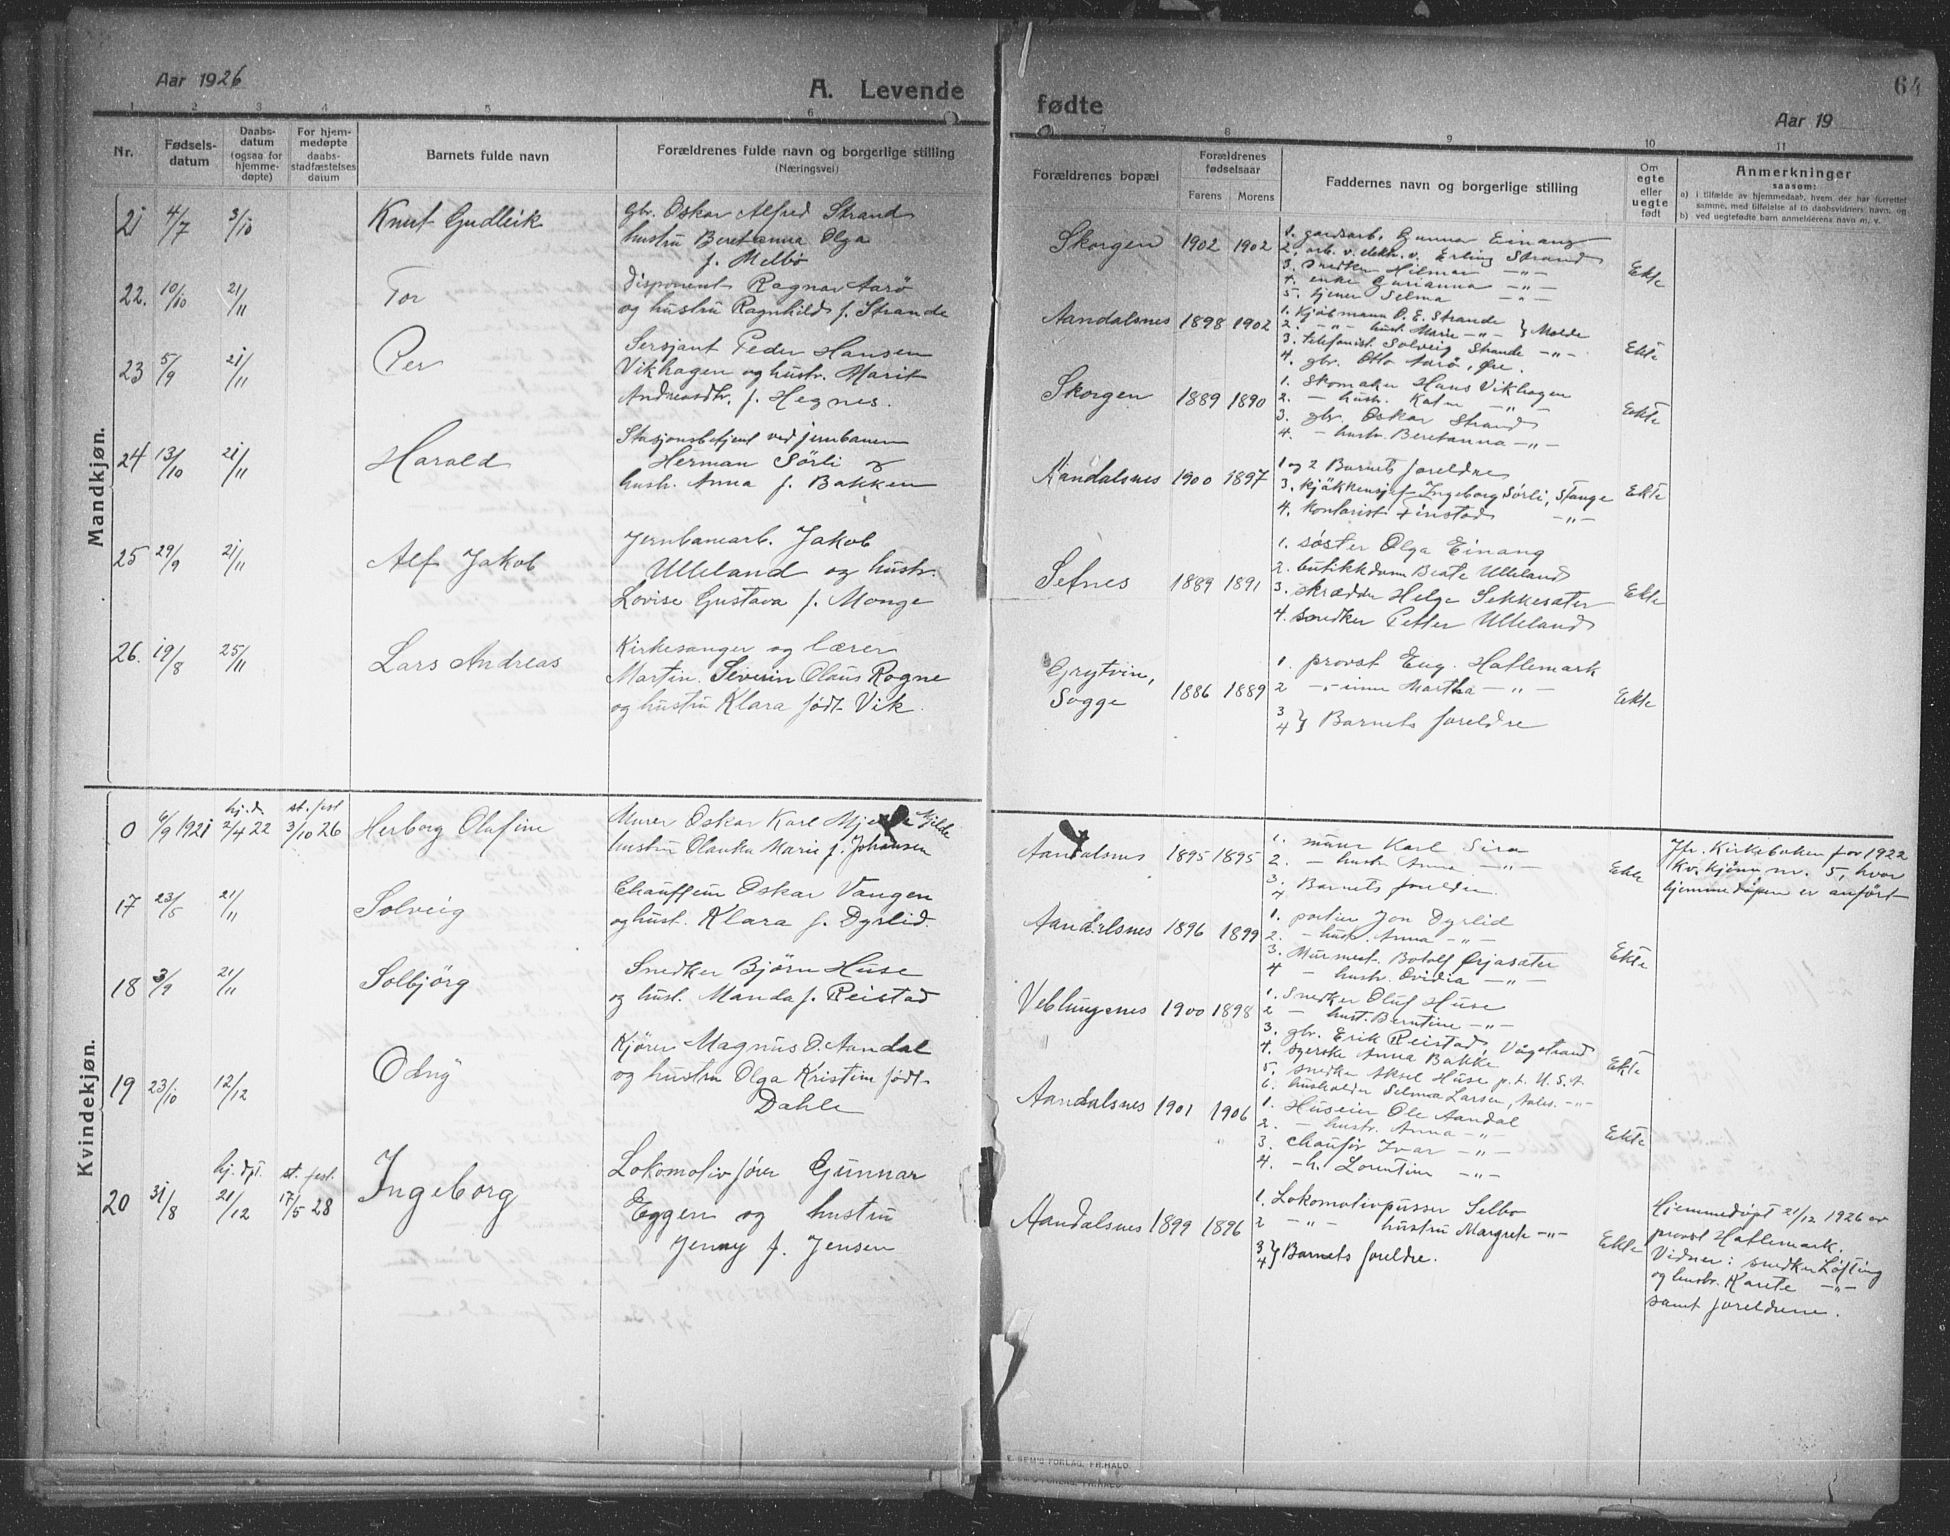 Aar 1926
A. Levende
fødte
Aar 19
64
1 2 3 4 5 6 7 8 9 10 11
Nr.
Fødsels-
datum
Daabs-
datum
(ogsaa for
hjemme-
døpte)
For hjem-
medøpte
daabs-
stadfæstelses
datum
Barnets fulde navn
Forældrenes fulde navn og borgerlige stilling
(Næringsvei)
Forældrenes bopæl
Forældrenes
fødselsaar
Farens Morens
Faddernes navn og borgerlige stilling
Om
egte
eller
uegte
født
Anmerkninger
saasom:
a) i tilfælde av hjemmedaab, hvem der har forrettet
samme, med tilføielse af to daabsvidners navn, og
b) ved uegtefødte barn anmelderens navn m. v.
Mandkjøn.
21 4/7 3/10 Knut Gudleik
gbr. Oskar Alfred Strand
hustru Beretanna Olga
f. Melbö
Skorgen 1902 1902
1. gaardsarb. Gunnar Einang
2. arb. v. elektr. v. Erling Strand
3. snedker Hilmar -"-
4. enke Gurianna -"-
5. tjener Selma -"-
Ekte
22. 10/10 21/11 Tor
Disponent Ragnar Aarö
og hustru Ragnhild f. Strande
Aandalsnes 1898 1902
1. Kjöbmann P. E. Strande } Molde
2. -"- hust. Marie -"-
3. telefonist Solveig Strande -"-
4. gbr. Otto Aarö, Øre.
Ekte
23 5/9 21/11 Per
Sersjant Peder Hansen
Vikhagen og hustr. Marit
Andreasdtr. f. Hegnes.
Skorgen 1889 1890
1. Skomaker Hans Vikhagen
2. - hustr. -"-
3. gbr. Oskar Strand
4. - hustr. Beretanna -"-
Ekte
24 13/10 21/11 Harald
Stasjonsbetjent ved jernbanen
Herman Sörli &
hustr. Anna f. Bakken
Aandalsnes 1900 1897
1 og 2 Barnets foreldre
3. kjökkensjef Ingeborg Sörli, Stange
4. Kontorist Finstad -"-
Ekte
25 29/9 21/11 Alf Jakob
Jernbanearb. Jakob
Ulleland og hustr.
Lovise Gustava f. Monge
Setnes 1889 1891
1. søster Olga Einang
2. butikkdame Beate Ulleland
3. skrædder Helge Sekkesæter
4. snedker Petter Ulleland
Ekte
26. 19/8 25/11 Lars Andreas
Kirkesanger og lærer
Martin Severin Olaus Rogne
og hustru Klara født Vik.
Grytvin,
Sogge 1886 1889
1. provst Eug. Hatlemark
2 -"- inne Martha -"-
3
4 } Barnets foreldre
Ekte
Kvindekjøn.
0 6/9 1921 hj.d. 2/4 22 st. fest 3/10 26 Herborg Olufine
Murer Oskar Karl Mjelde
hustru Olauka Marie f. Johansen
Aandalsnes 1895 1895
1. murer Karl Sira
2. - hustr. Anna -"-
3.
4 Barnets foreldre.
Ekte
Jfr. Kirkeboken for 1922
Kv.kjönn nr. 5, hvor
hjemmedåpen er anført
17 23/5 21/11 Solveig
Chauffeur Oskar Vangen
og hust. Klara f. Dyrlid.
Aandalsnes 1896 1899
1. portier Jon Dyrlid
2. - hustr. Anna -"-
3. Murmest. Botolf Ørjasæter
4 - hustr. Ovidia -"-
Ekte
18 3/9 21/11 Solbjörg
Snedker Bjørn Huse
og hust. Manda f. Reistad
Veblungsnes 1900 1898
1. Snedker Oluf Huse
2 - hust. Berntine -"-
3. gbr. Erik Reistad, Vågstrand
4. syerske Anna Bakke
5. snedker Aksel Huse p.t. U.S.A
6. husholder Selma Larsen, Aales. -"-
Ekte
19 23/10 12/12 Odny
Kjörer Magnus O. Aandal
og hustru Olga Kristine født
Dahle
Aandalsnes 1901 1906
1. Huseier Ole Aandal
2. - hustr. Anna -"-
3. chauför Ivar -"-
4. - h. Lorentine -"-
Ekte
20 31/8 hj. dpt. 21/12 st. fest. 17/5 28 Ingeborg
Lokomotivfører Gunnar
Eggen og hustru
Jenny f. Jensen
Aandalsnes 1899 1896
1. Lokomotivpusser Selbo
2 -"- hustru Margrete -"-
3
4 } Barnets foreldre.
Ekte
Hjemmedøpt 21/12 1926 av
provst Hatlemark.
Vidner: snedker Löfting
og hustr. Karete -"-
samt foreldrene.
E. SEM'S FORLAG, FR.HALD.